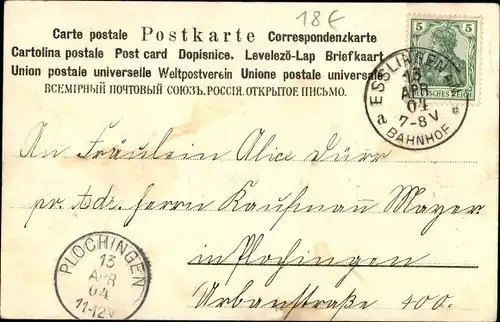 18 €
Carte postale Postkarte Correspondenzkarte
Cartolina postale Post card Dopisnice. Levelező-Lap Briefkaart
Union postale universelle Weltpostverein Unione postale universale
ВСЕМІРНЫЙ ПОЧТОВЫЙ СОЮЗЪ. РОССІЯ. ОТКРЫТОЕ ПИСЬМО.
5 5
DEUTSCHES REICH
ESSLINGEN
13
APR
04
a 7-8V *
BAHNHOF
An Fräulein Alice Dürr
pr. Adr. Herrn Kaufmann Mayer
in Plochingen
Urbanstraße 100.
PLOCHINGEN
13
APR
04
11-12V